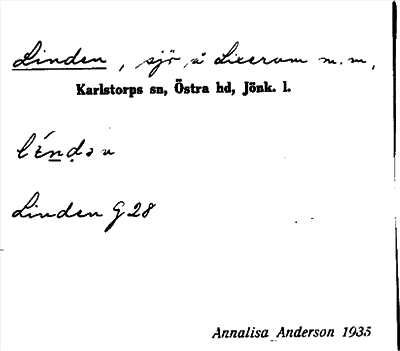 Linden, sjö, å Lixerum m.m,
Karlstorps sn, Östra hd, Jönk. l.
Linden G 28
Annalisa Anderson 1935